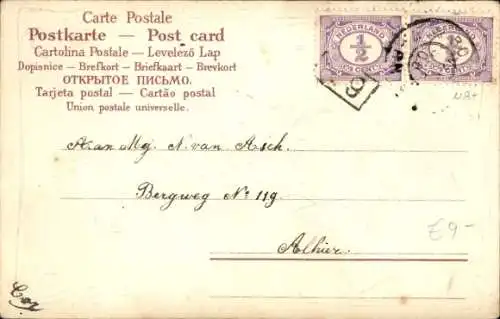 Carte Postale
Postkarte — Post card
Cartolina Postale — Levelező Lap
Dopisnice — Brefkort — Briefkaart — Brevkort
ОТКРЫТОЕ ПИСЬМО.
Tarjeta postal — Cartão postal
Union postale universelle.
NEDERLAND
1/2
CENT
NEDERLAND
CENT
8
Aan Mej. N. van Asch.
Bergweg No 119.
Alhier.
£9-